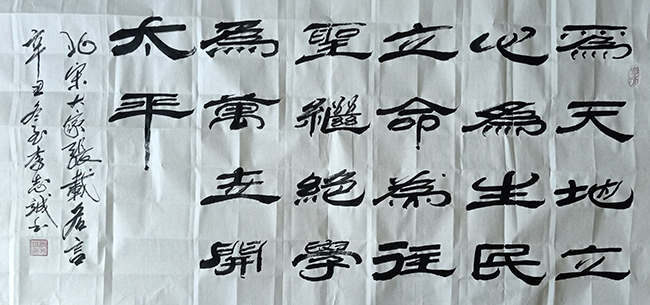 爲天地立
心為生民
立命為往
聖繼絕學
爲萬世開
太平
北宋大家張載名言
辛丑冬至李志誠书